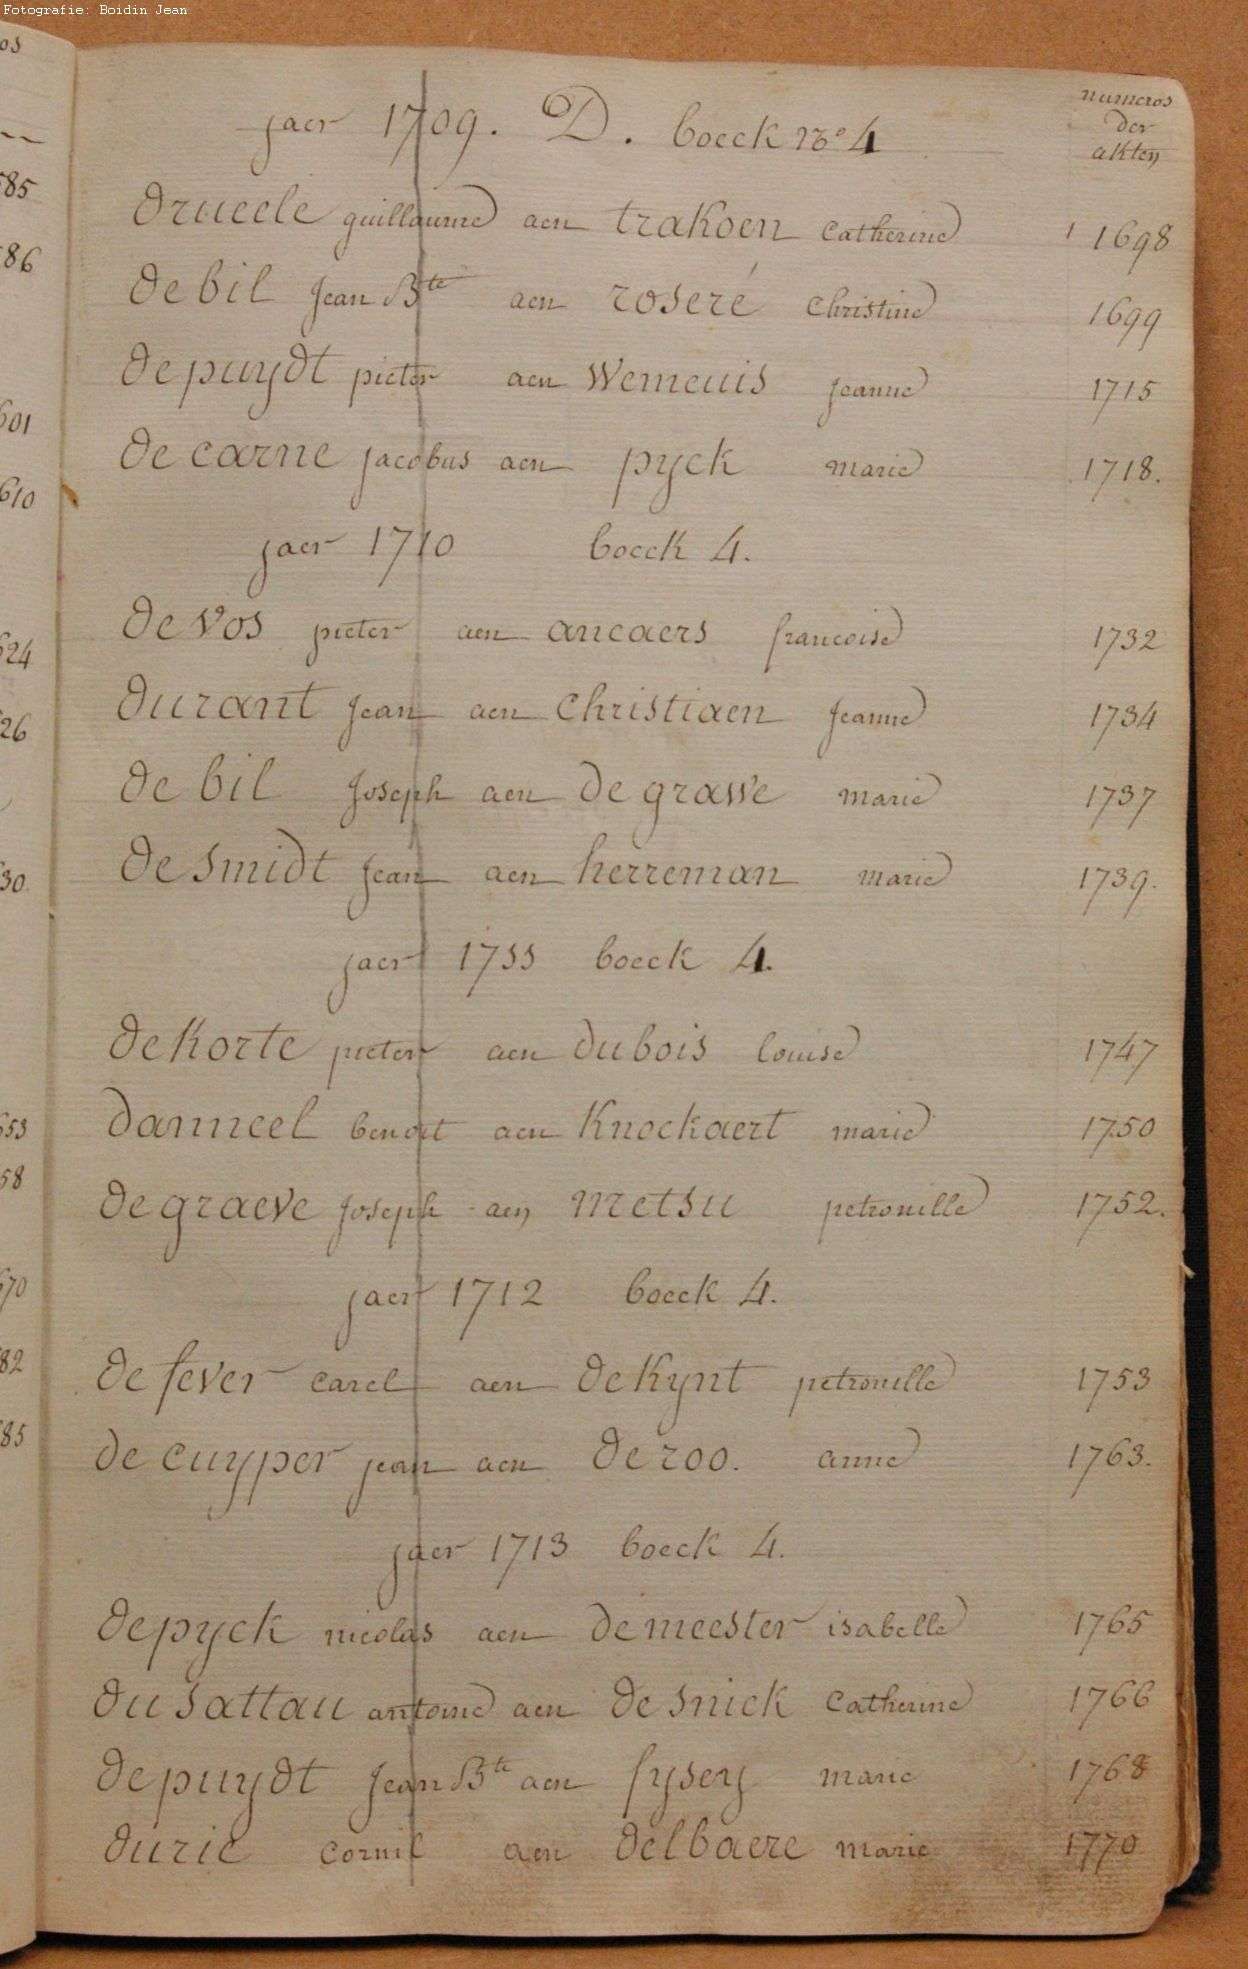 Fotografie: Boidin Jean
jaer 1709. D. boeck no 4
numeros
der
akten
drueele guillaume aen trakoen catherine 1698
de bil Jean Bte aen roseré christine 1699
de puydt pieter aen Wemeuis jeanne 1715
de carne jacobus aen pyck marie 1718.
jaer 1710 boeck 4.
de vos pieter aen ancaers francoise 1732
durant Jean aen christiaen jeanne 1734
de bil Joseph aen de grawe marie 1737
de smidt jean aen herreman marie 1739.
jaer 1733 boeck 4.
de korte pieter aen dubois louise 1747
danneel benoit aen Knockaert marie 1750
de graeve Joseph aen metsu petronille 1752.
jaer 1712 boeck 4.
de fever carel aen de Kynt petronille 1753
de cuyper jean aen de roo. anne 1763.
jaer 1713 boeck 4.
de pyck nicolas aen de meester isabelle 1765
du sattau antoine aen de snick catherine 1766
de puydt Jean Bte aen fysey marie 1768
durie cornil aen delbaere marie 1770
85
86
601
610
624
26
30.
653
58
670
82
85